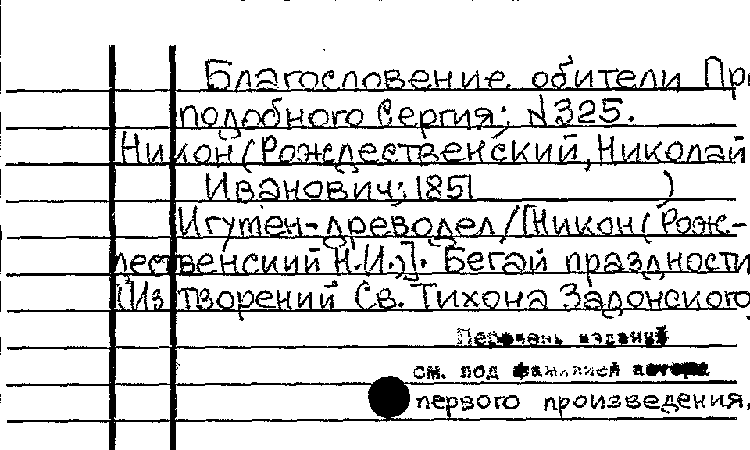 Благословение обители Пре
подобного Сергия; N325.
Никон (Рождественский, Николай
Иванович; 1851 )
Игумен-древодел/[Никон (Рож-
дественсиий Н.И.)]. Бегай праздности
(Из творений Св. Тихона Задонского
Перечень изданий
см. под фамилией автора
первого произведения.